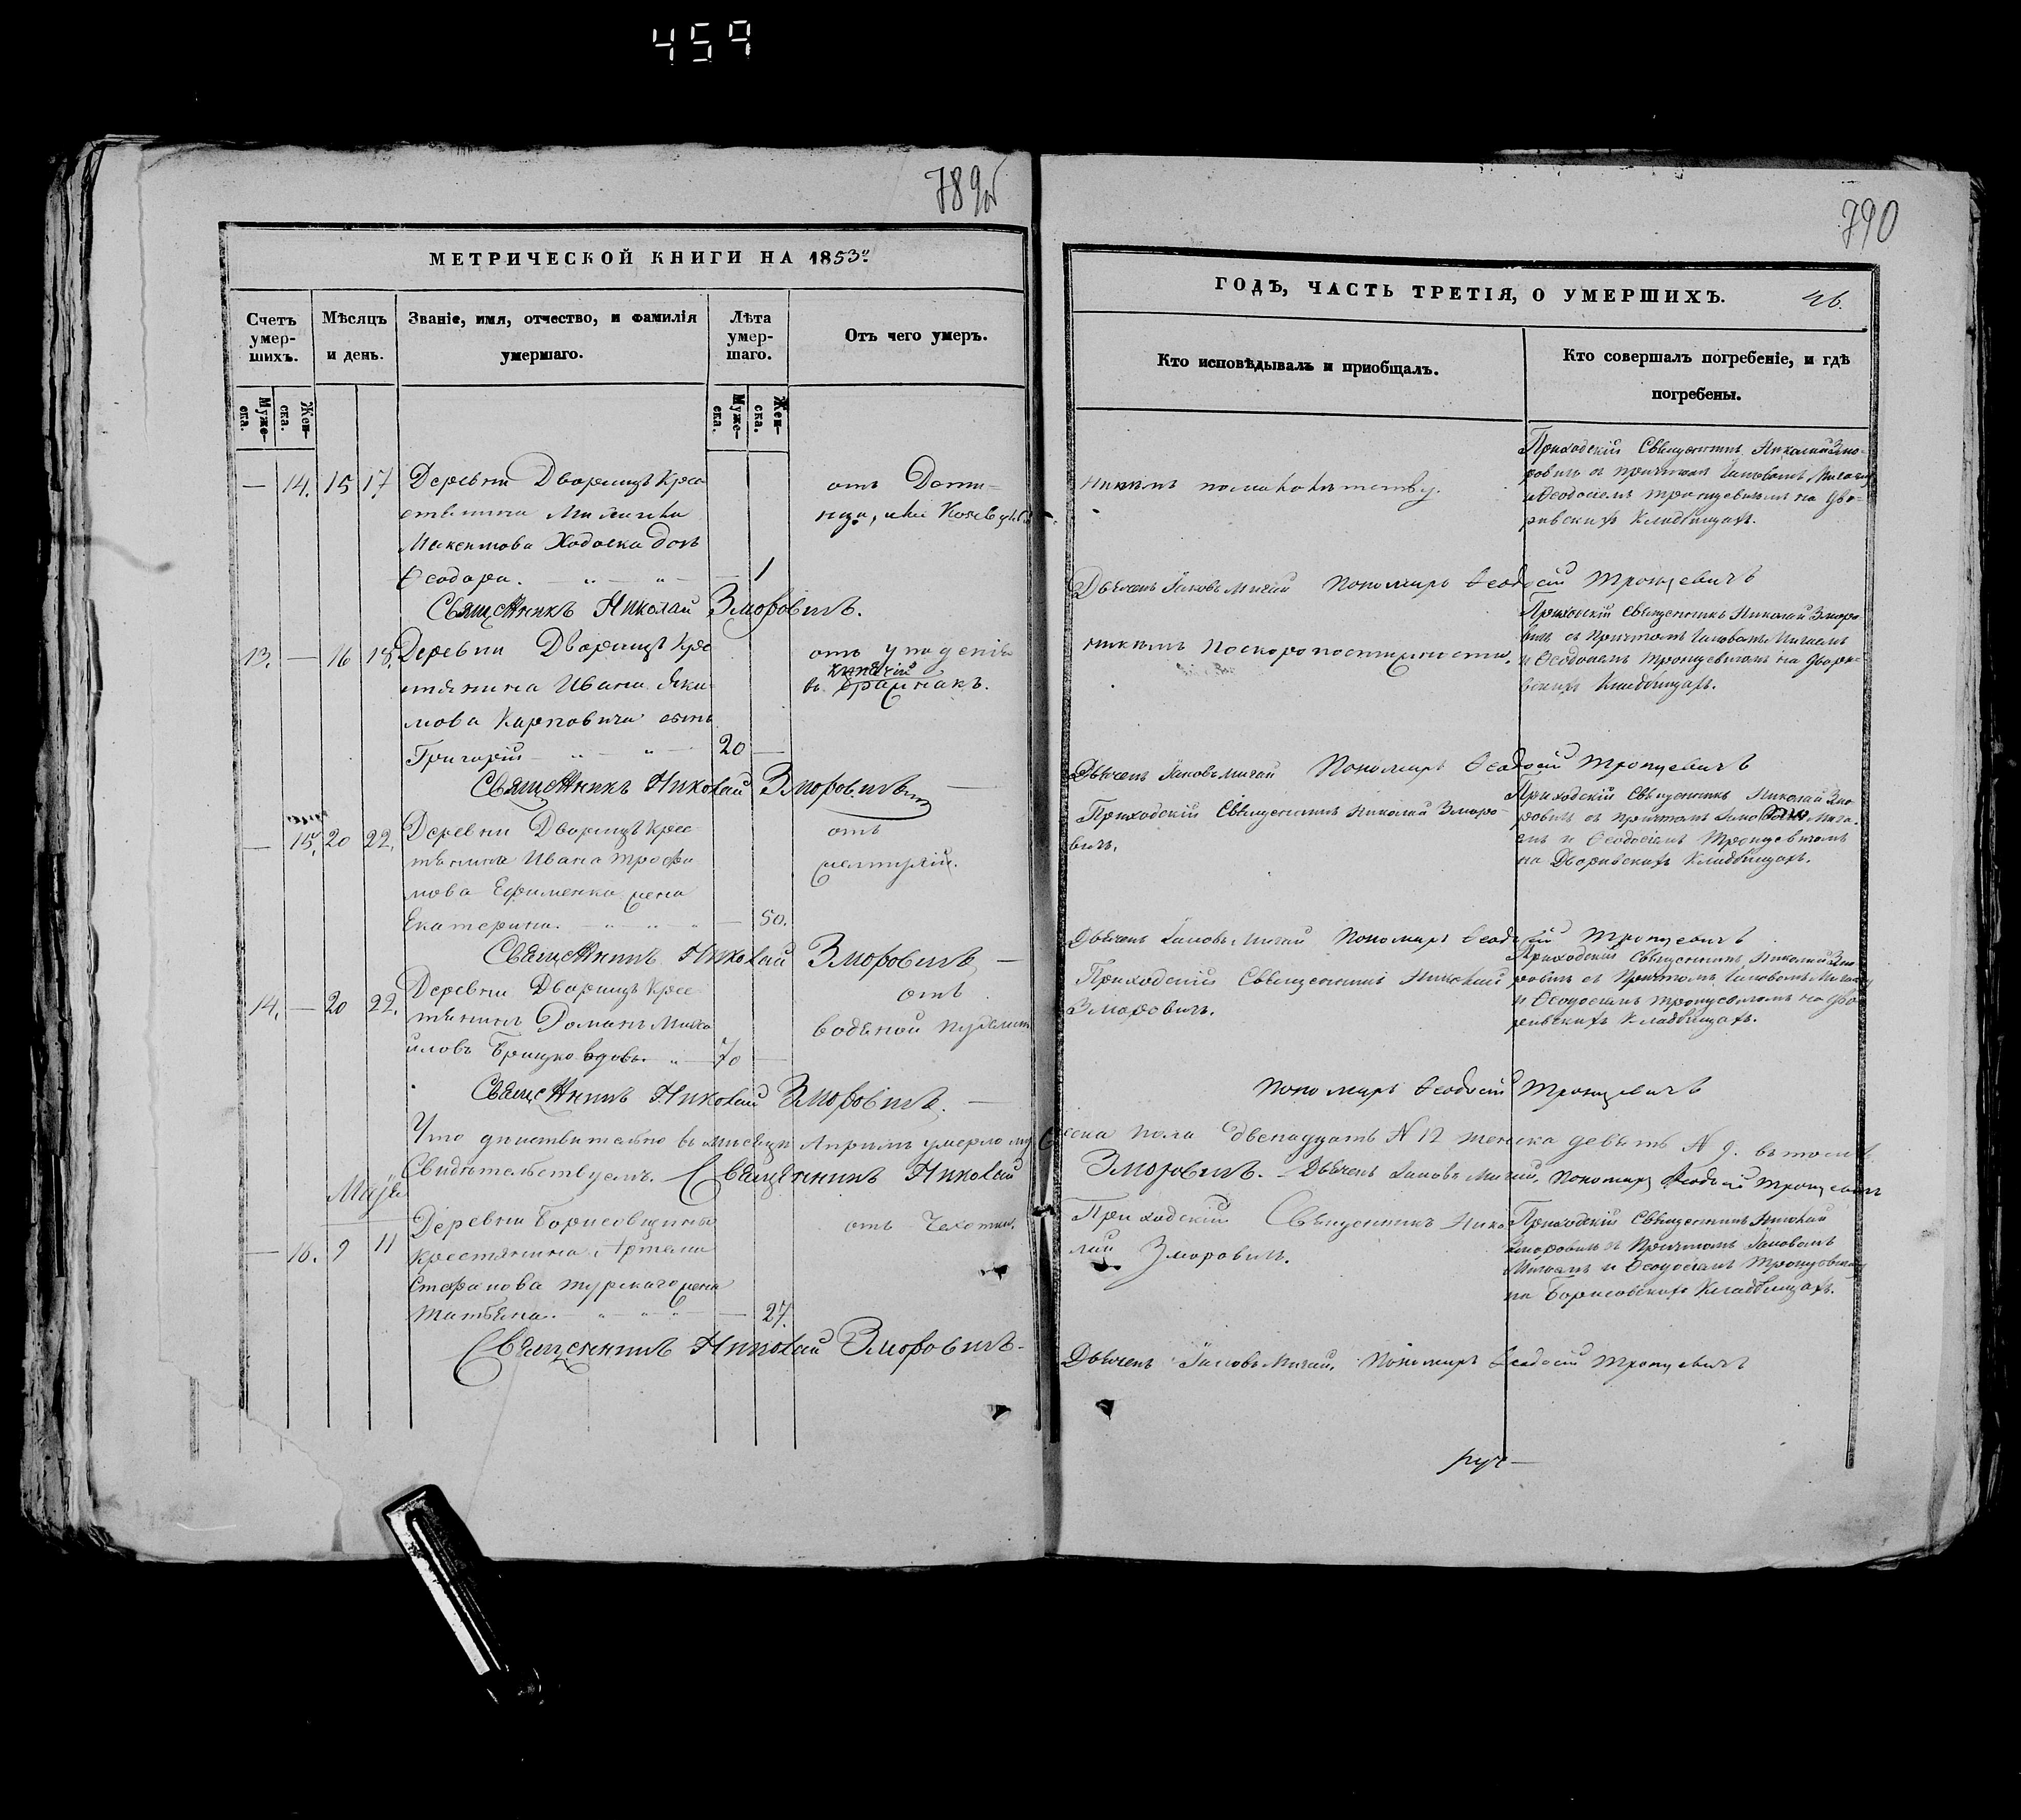 459
789об
790
МЕТРИЧЕСКОЙ КНИГИ НА 1853й
ГОДЪ, ЧАСТЬ ТРЕТІЯ, О УМЕРШИХЪ. 46.
Счетъ умер-шихъ.
Мѣсяцъ и день.
Званіе, имя, отчество, и фамилія умершаго.
Лѣта умер-шаго.
Отъ чего умеръ.
Кто исповѣдывалъ и приобщалъ.
Кто совершалъ погребеніе, и гдѣ погребены.
Муже-ска.
Жен-ска.
Муже-ска.
Жен-ска.
— 14. 15 17 Деревни Дворищъ Крес
стянина
Максимова Ходоска дочь
Ѳеодора. — 1
отъ
никимъ
Приходскій Священникъ Николай Змо-
ровичъ съ причтомъ Іаковомъ Мигаемъ
и Ѳеодосіемъ Тронцевичемъ на Дво-
ривскихъ Кладбищахъ.
Священникъ Николай Зморовичъ.
Дьячекъ Іаковъ Мигай Пономаръ Ѳеодосій Тронцевичъ
13. — 16 18. Деревни Дворищъ Кре
стянина Ивана Яки
мова Карповича сынъ
Григорій 20 —
отъ упаденія
въ
никимъ по скоропостижности.
Приходскій Священникъ Николай Зморо
вичъ съ Причтомъ Іаковомъ Мигаемъ
и Ѳеодосіемъ Тронцевичемъ на Двори
вскихъ Кладбищахъ.
Священникъ Николай Зморовичъ
Дьячекъ Іаковъ Мигай Пономаръ Ѳеодосій Тронцевичъ
— 15. 20 22. Деревни Дворищъ Крес
тянина Ивана Трофи
мова Ефименка жена
Екатерина. — 50.
отъ
Приходскій Священникъ Николай Зморо
вичъ.
Приходскій Священникъ Николай Змо
ровичъ съ причтомъ Іаковомъ Мига
емъ и Ѳеодосіемъ Тронцевичемъ
на Дворивскихъ Кладбищахъ.
Священникъ Николай Зморовичъ —
Дьячекъ Іаковъ Мигай Пономаръ Ѳеодосій Тронцевичъ
14. — 20 22. Деревни Дворищъ Крес
тянинъ Романъ Миха
иловъ Грицко вдовъ. 70 —
отъ
водяной
Приходскій Священникъ Николай
Зморовичъ.
Приходскій Священникъ Николай Змо
ровичъ съ Причтомъ Іаковомъ Мигаемъ
и Ѳеодосіемъ Тронцевичомъ на Дво
ривскихъ Кладбищахъ.
Священникъ Николай Зморовичъ. —
Пономаръ Ѳеодосій Тронцевичъ
Что дѣйствительно въ мисяцѣ Априлѣ умерло мужеска пола двенадцать № 12 женска девять № 9. въ томъ
Свидѣтельствуемъ. Священникъ Николай Зморовичъ. — Дьячекъ Іаковъ Мигай. Пономаръ Ѳеодосій Тронцевичъ
— 16. 9 11 Деревни Борисовщины
крестянина Артема
Стефанова Турскаго жена
Татьяна. — 27.
отъ Чахотки.
Приходскій Священникъ Нико
лай Зморовичъ.
Приходскій Священникъ Николай
Зморовичъ съ Причтомъ Іаковомъ
Мигаемъ и Ѳеодосіемъ Тронцевичемъ
на Борисовскихъ Кладбищахъ.
Священникъ Николай Зморовичъ
Дьячекъ Іаковъ Мигай. Пономаръ Ѳеодосій Тронцевичъ